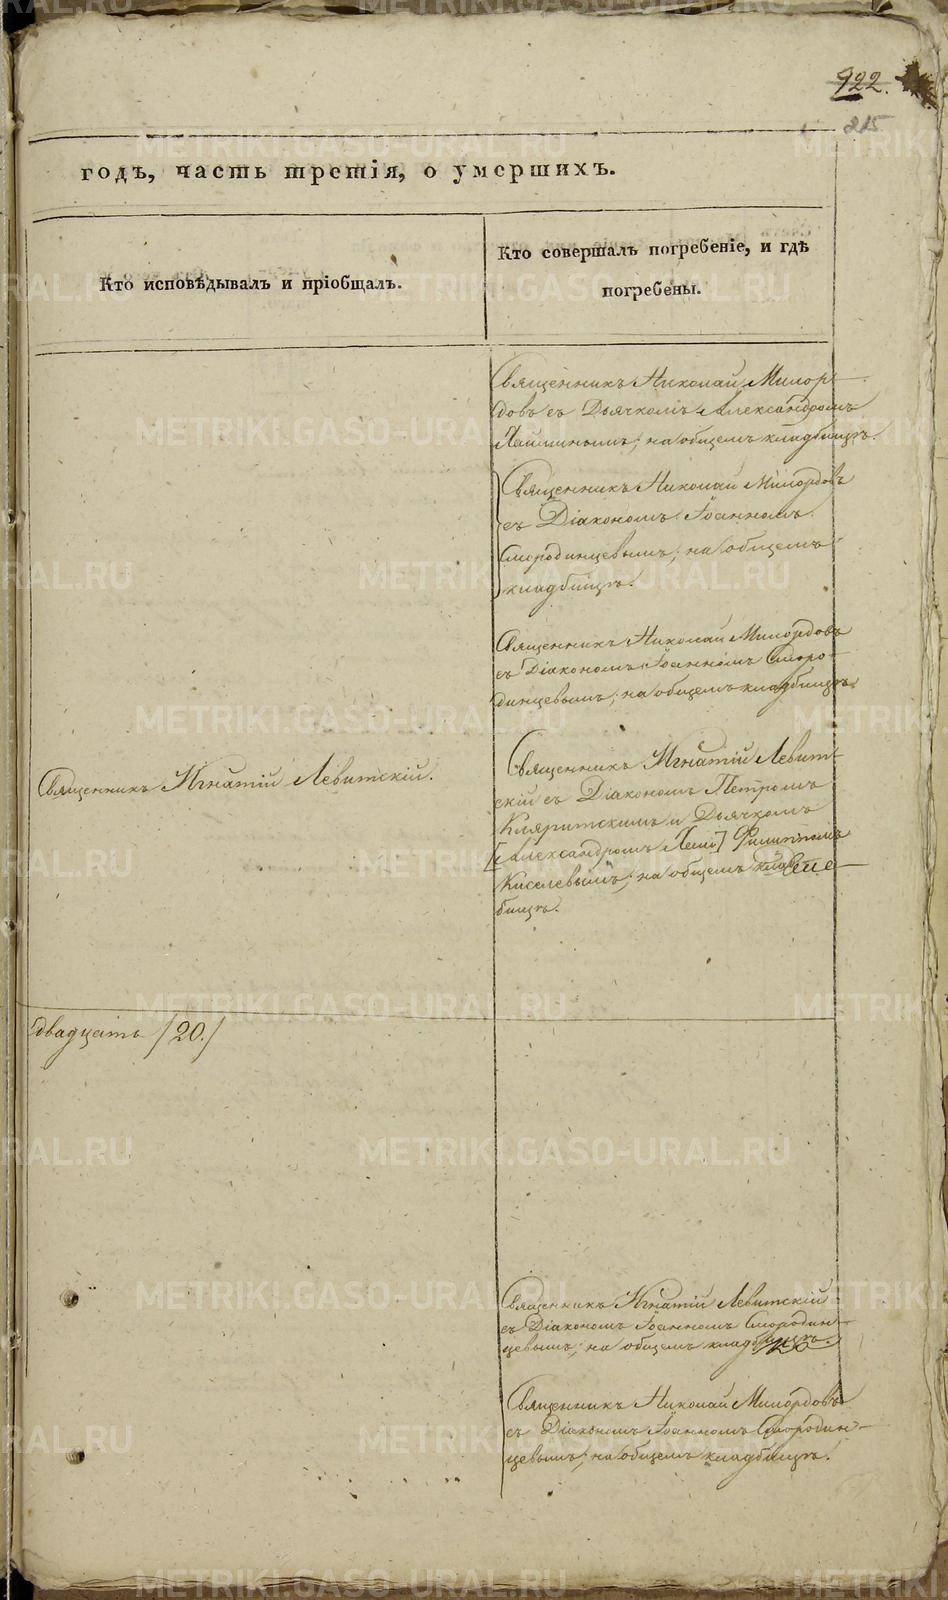 922.
215
годъ, часть третія, о умершихъ.
Кто исповѣдывалъ и пріобщалъ.
Кто совершалъ погребеніе, и гдѣ
погребены.
Священникъ Николай Милор-
довъ съ Дьячкомъ Александромъ
на общемъ кладбищѣ.
Священникъ Николай Милордовъ
съ Діакономъ Іоанномъ
Смородинцевымъ; на общемъ
кладбищѣ.
Священникъ Николай Милордовъ
съ Діакономъ Іоанномъ Сморо-
динцевымъ; на общемъ кладбищѣ.
Священникъ Игнатій Левитскій.
Священникъ Игнатій Левит-
скій съ Діакономъ Петромъ
и Дьячкомъ
[Александромъ] Филиппомъ
Киселевымъ; на общемъ клад-
бищѣ.
двадцать /20./
Священникъ Игнатій Левитскій
съ Діакономъ Іоанномъ Смородин-
цевымъ; на общемъ кладбищѣ.
Священникъ Николай Милордовъ
съ Діакономъ Іоанномъ Смородин-
цевымъ; на общемъ кладбищѣ.
METRIKI.GASO-URAL.RU